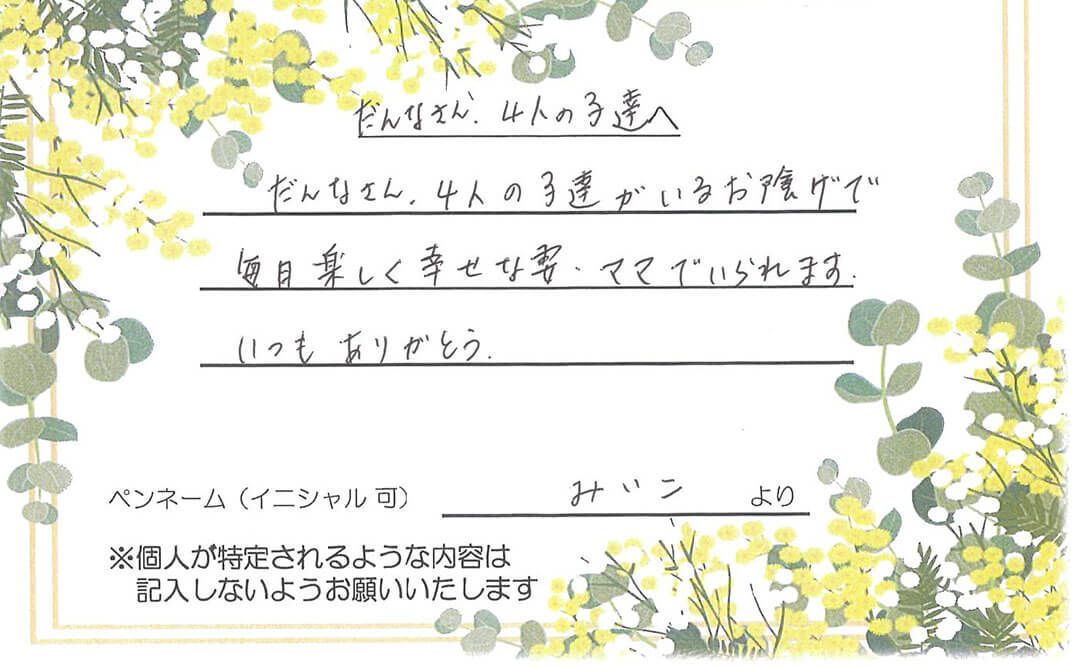 だんなさん、4人の子達へ
だんなさん、4人の子達がいるお陰げで
毎日楽しく幸せな妻・ママでいられます。
いつもありがとう。
ペンネーム（イニシャル 可） みいこ より
※個人が特定されるような内容は
記入しないようお願いいたします